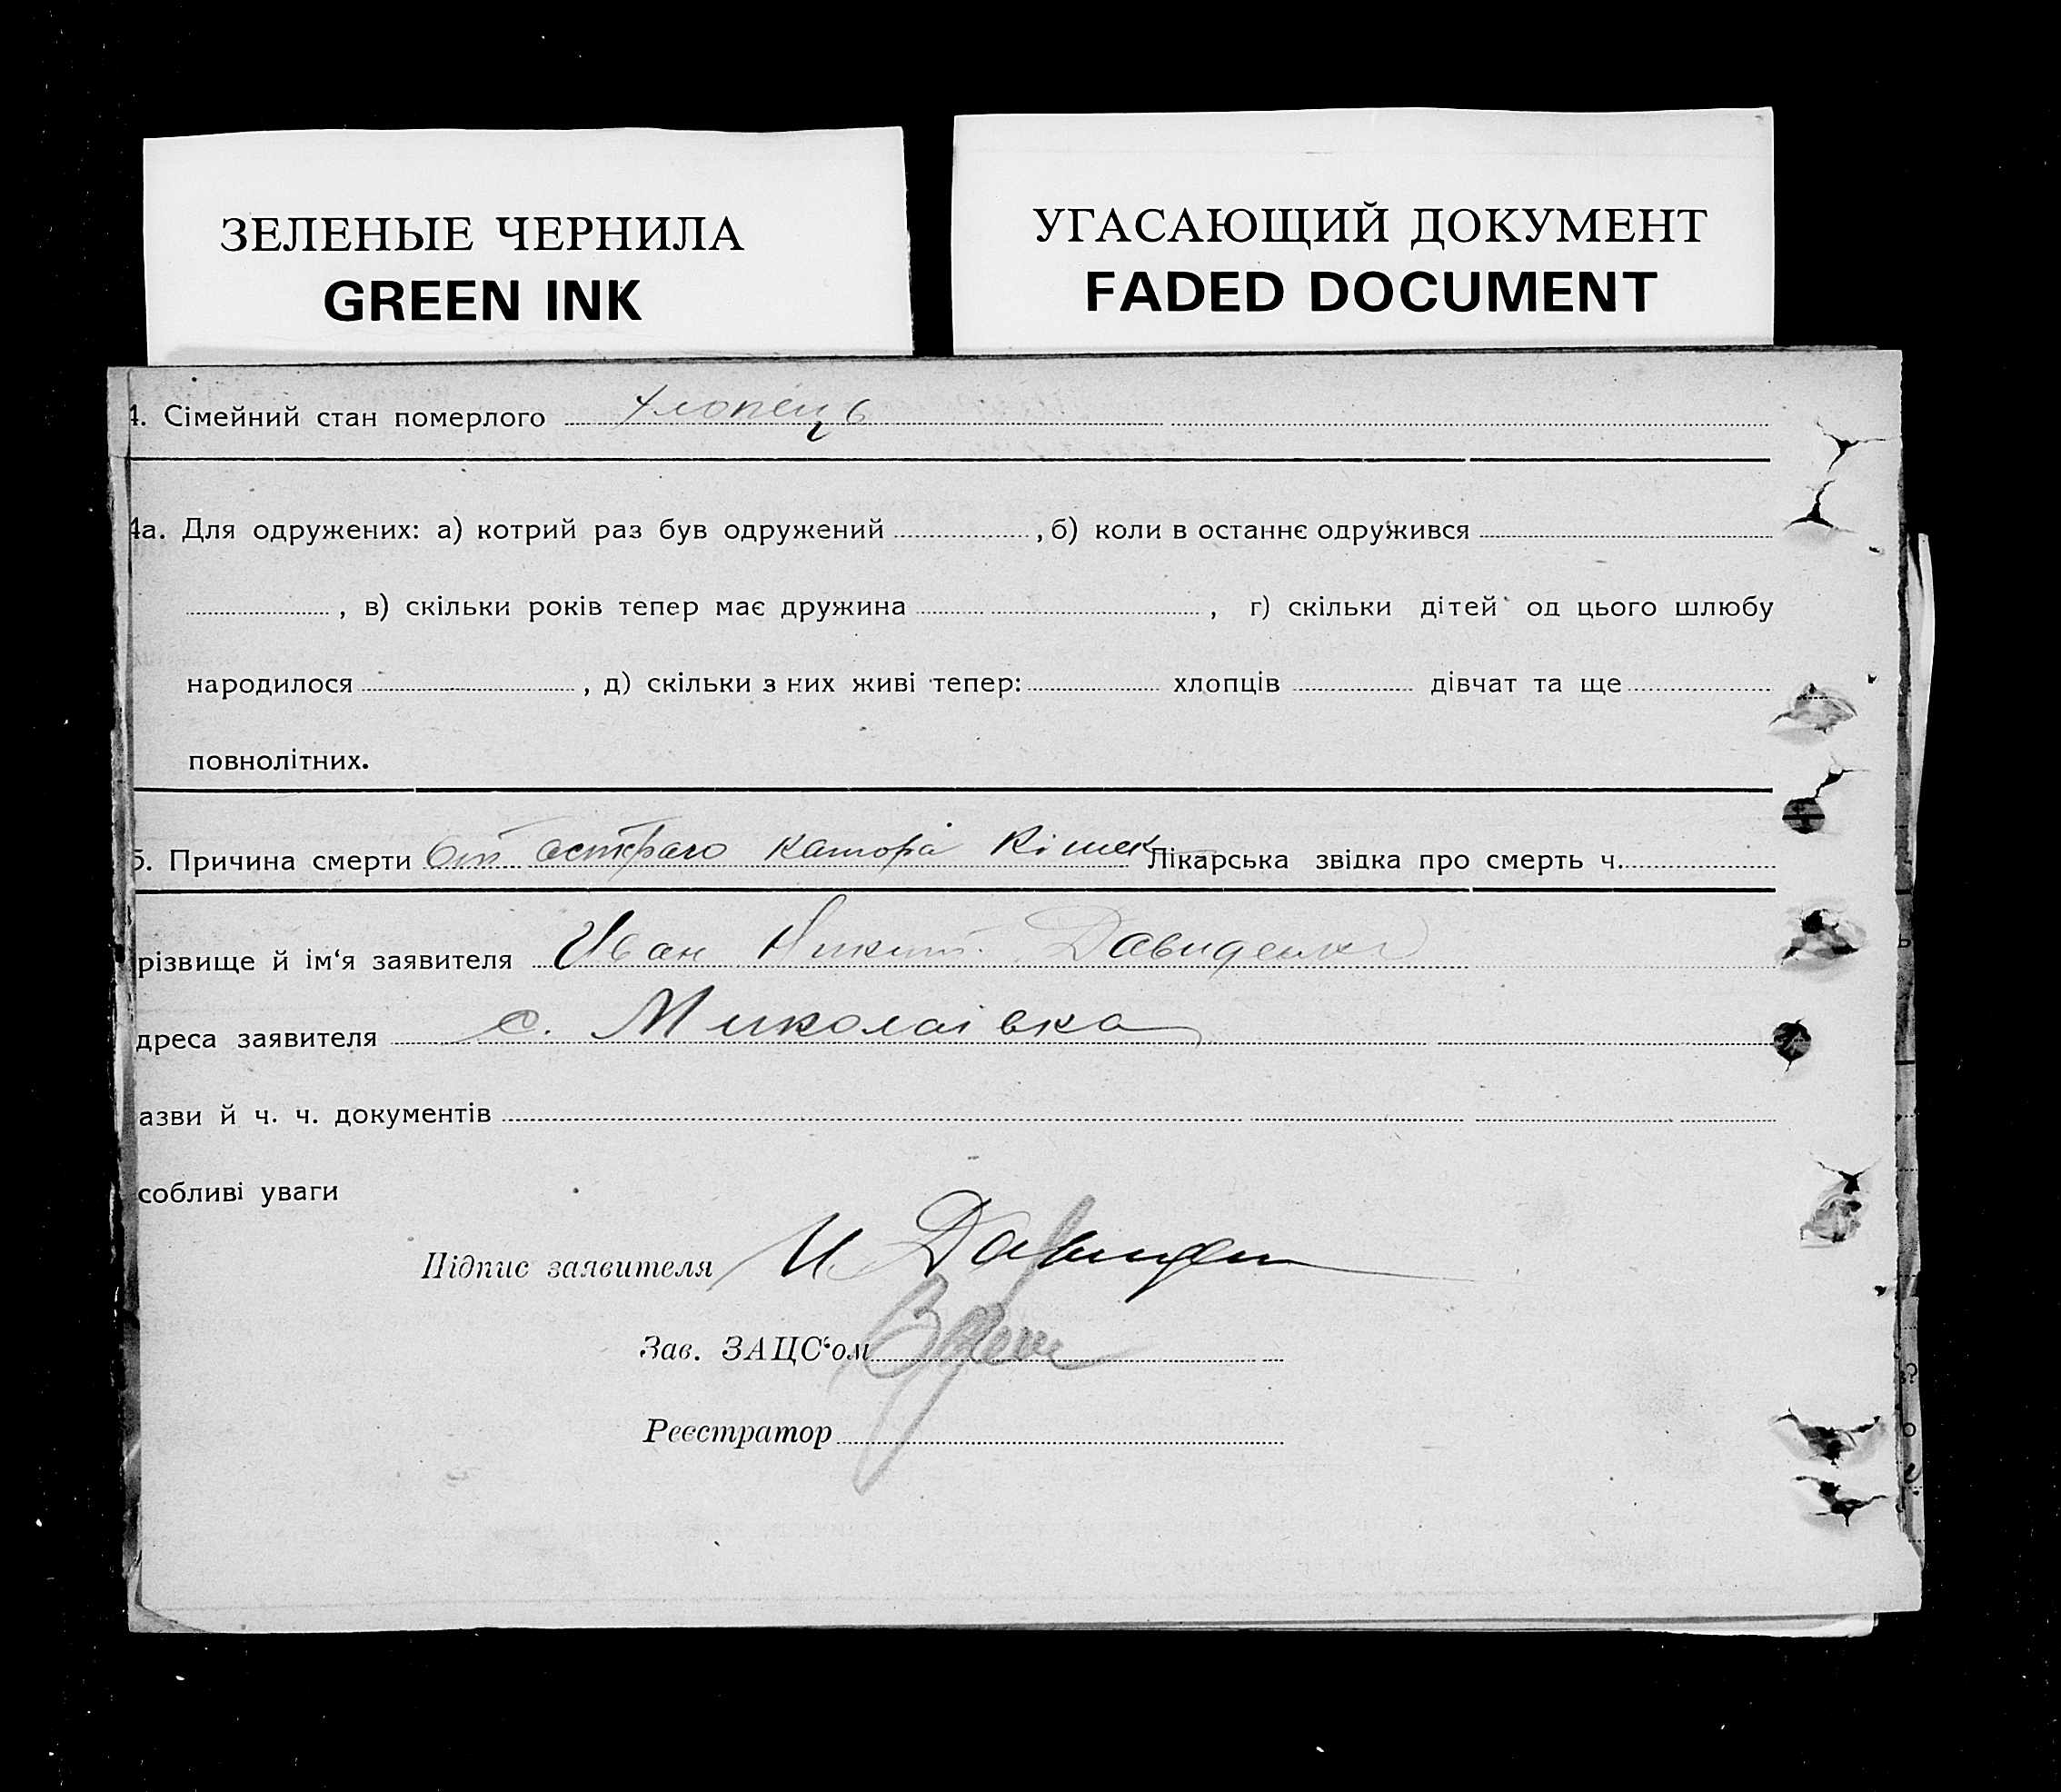 ЗЕЛЕНЫЕ ЧЕРНИЛА
GREEN INK
УГАСАЮЩИЙ ДОКУМЕНТ
FADED DOCUMENT
4. Сімейний стан померлого хлопець
4а. Для одружених: а) котрий раз був одружений , б) коли в останнє одружився
, в) скільки років тепер має дружина , г) скільки дітей од цього шлюбу
народилося , д) скільки з них живі тепер: хлопців дівчат та ще
повнолітних.
5. Причина смерти От острого катора Кішек Лікарська звідка про смерть ч.
різвище й ім‘я заявителя Иван Никит. Давиденко
дреса заявителя с. Миколаівка
азви й ч. ч. документів
собливі уваги
Підпис заявителя И Давиден
Зав. ЗАЦС‘ом
Реєстратор